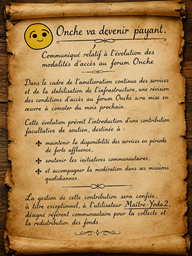 Onche va devenir payant.
Communiqué relatif à l'évolution des
modalités d'accès au forum Onche
Dans le cadre de l'amélioration continue des services
et de la stabilisation de l'infrastructure, une révision
des conditions d'accès au forum Onche sera mise en
œuvre à compter du mois prochain.
Cette évolution prévoit l'introduction d'une contribution
facultative de soutien, destinée à :
maintenir la disponibilité des services en périodes
de forte affluence,
soutenir les initiatives communautaires,
et accompagner la modération dans ses missions
quotidiennes.
La gestion de cette contribution sera confiée,
à titre exceptionnel, à l'utilisateur Maitre-Yoda2,
désigné référent communautaire pour la collecte et
la redistribution des fonds.